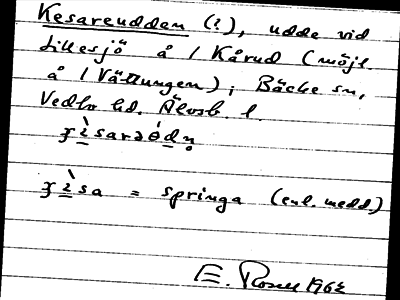 Kesareudden (?), udde vid
Lillesjö å / Kårud (möjl.
å / Vättungen); Bäcke sn,
Vedbo hd. Älvsb. l.
ʒìsarəòdṇ
ʒìsa = springa (enl. medd.)
E. 1962